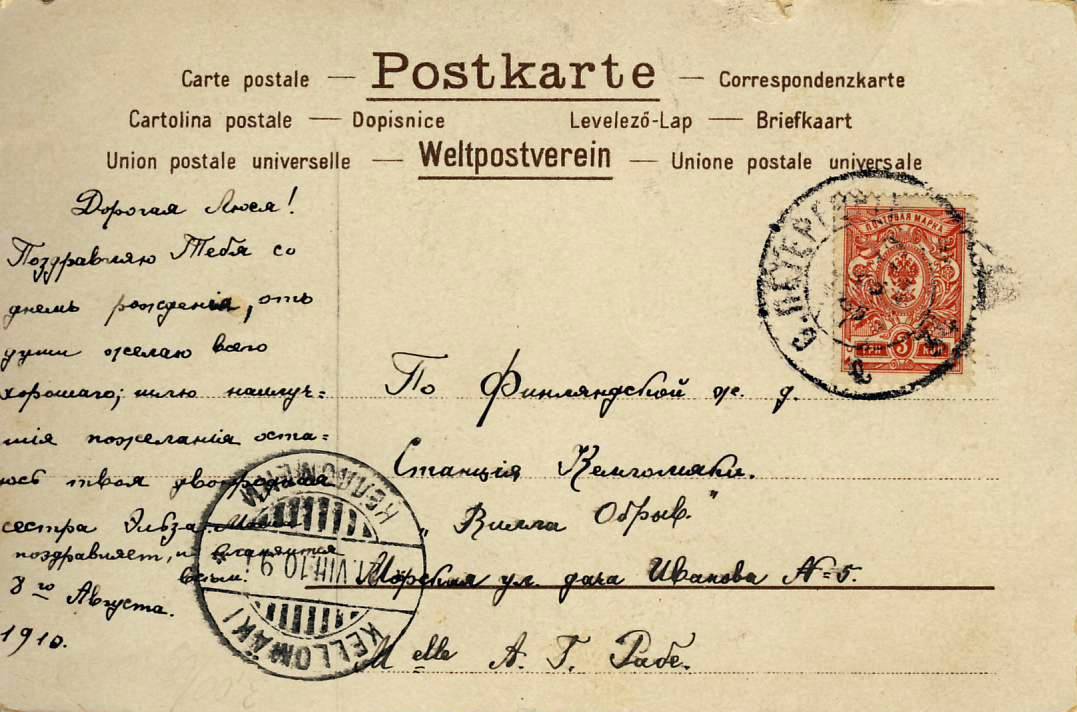 Carte postale — Postkarte — Correspondenzkarte
Cartolina postale — Dopisnice Levelező-Lap — Briefkaart
Union postale universelle — Weltpostverein — Unione postale universale
Дорогая Люся!
Поздравляю Тебя со
днемъ рожденія, отъ
души желаю всего
хорошаго; шлю наилуч=
шія пожеланія оста=
юсь твоя двоюродная
сестра Эльза. Мама
поздравляет, и кланяется
всѣм.
8 го Августа.
1910.
По Финляндской ж. д.
Станція Келломяки.
„Вилла Обрыв."
Морская ул. дача Иванова № 5.
M elle А. Г. Рабе.
С.ПЕТЕРБУРГЪ
ПОЧТОВАЯ МАРКА
ТРИ 3 КОП
КЕЛЛОМЯКИ
VIII.10.9
KELLOMÄKI